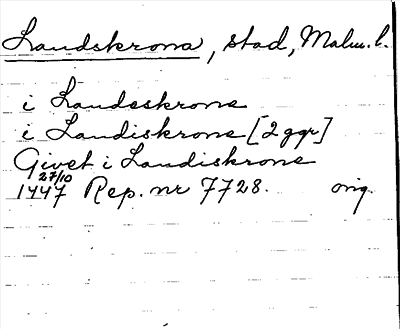 Landskrona, stad, Malm. l.
i Landeskrone
i Landiskrone [2 ggr]
Givet i Landiskrone
27/10
1447 Rep. nr 7728. orig.